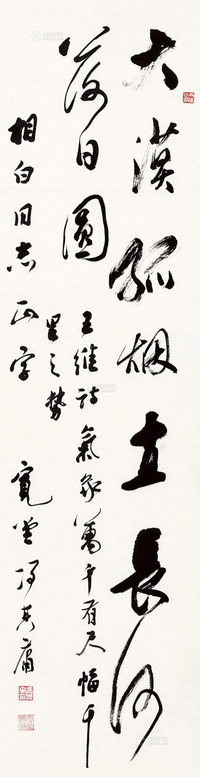 大漠孤烟直长河
落日圆
王维诗气象万千有尺幅千
里之势
相白同志正字
宽堂冯其庸